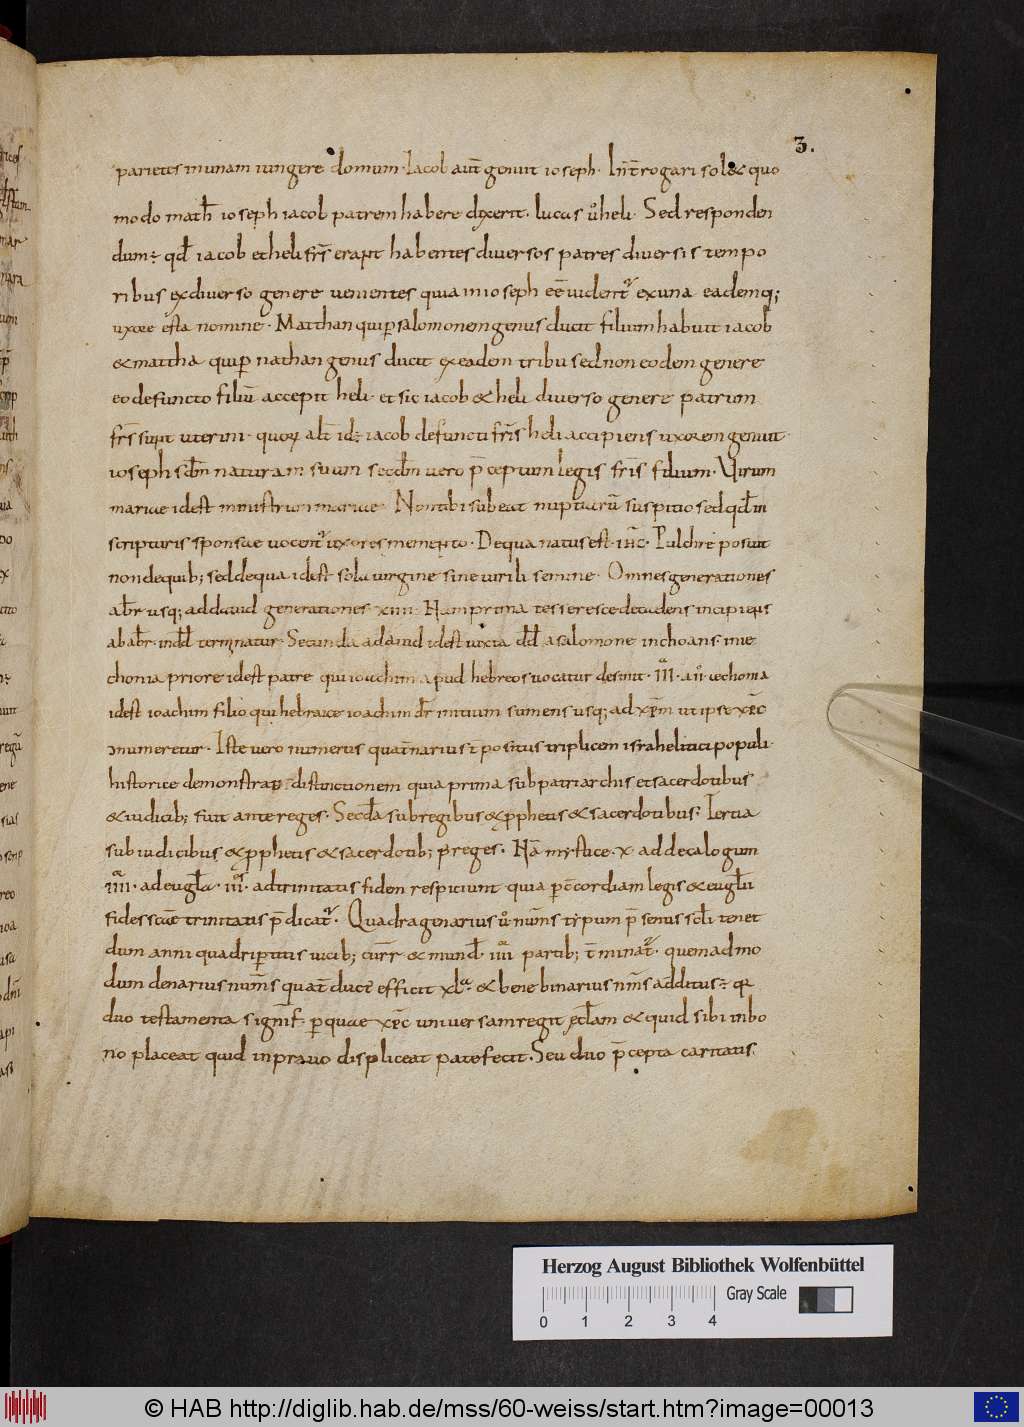 3.
parietes in unam iungere domum· Iacob aut̄ genuit ioseph· Int̄rogari sol& quo
modo math̄ ioseph iacob patrem habere dixerit· lucas u̓ heli· Sed responden
dum÷ qd̄ iacob et heli frs̄ erant habentes diversos patres diversis tempo
ribus ex diverso genere venientes quia in ioseph eē vident᷑ ex una eademq;
uxore esta nomine· Matthan qui p̱ salomonem genus ducit filium habuit iacob
& mattha qui p̱ nathan genus ducit ex eadem tribu sed non eodem genere
eo defuncto filiū accepit heli· et sic iacob & heli diverso genere patrum
frs̄ sunt uterini· quoꝝ alt̄ id÷ iacob defuncti fris̄ heli accipiens uxorem genuit
ioseph scd̄m naturam suum secd̄m vero p̄ceptum legis fris̄ filium· Virum
mariae idest ministrum mariae· Non tibi subeat nuptiarū suspitio sed qd̄ in
scripturis sponsae vocent᷑ uxores memento· De qua natus est ihc̄· Pulchre posuit
non de quib; sed de qua idest sola virgine sine virili semine· Omnes generationes
abr̄ usq; ad david generationes xiiii· Nam prima tesseresce decadens incipiens
ab abr̄· in dd̄ terminatur· Secunda ad david idest iuxta dd̄ a salomone inchoans· in ie
chonia priore idest patre qui ioachim apud hebreos vocatur desinit· III· au̓ iechonia
idest ioachim filio qui hebraice ioachim dr̄ initium sumens usq; ad xpm̄ ut ipse xpc̄
numeretur· Iste vero numerus quat̄narius t̄ positus triplicem israhelitici populi·
historice demonstrat distinctionem quia prima sub patriarchis et sacerdotibus
& iudicib; fuit ante reges· Secd̄a sub regibus & p̱phetis & sacerdotibus· Tertia
sub iudicibus & p̱phetis & sacerdotib; p̱ reges· Nā mystice· x· ad decalogum
·IIII· ad eugl̄a· III· ad trinitatis fidem respiciunt quia p̱ c̄cordiam legis & eugl̄ii
fides scāe trinitatis p̄dicat᷑· Quadragenarius u̓ num̄s typum p̄sentis scl̄i tenet
dum anni quadrip̱titis vicib; curr̄ & mund̄· IIII partib; t̄minat᷑· quemadmo
dum denarius num̄s quat̄ ductē efficit xl᷒a· & bene binarius nm̄s additus÷ qꝛ
duo testamenta signif̄· p̱ quae xpc̄ universam regit ecl̄am & quid sibi in bo
no placeat quid in pravo displiceat patefecit· Seu duo p̄cepta caritatis·
Herzog August Bibliothek Wolfenbüttel
Gray Scale
0 1 2 3 4
© HAB http://diglib.hab.de/mss/60-weiss/start.htm?image=00013